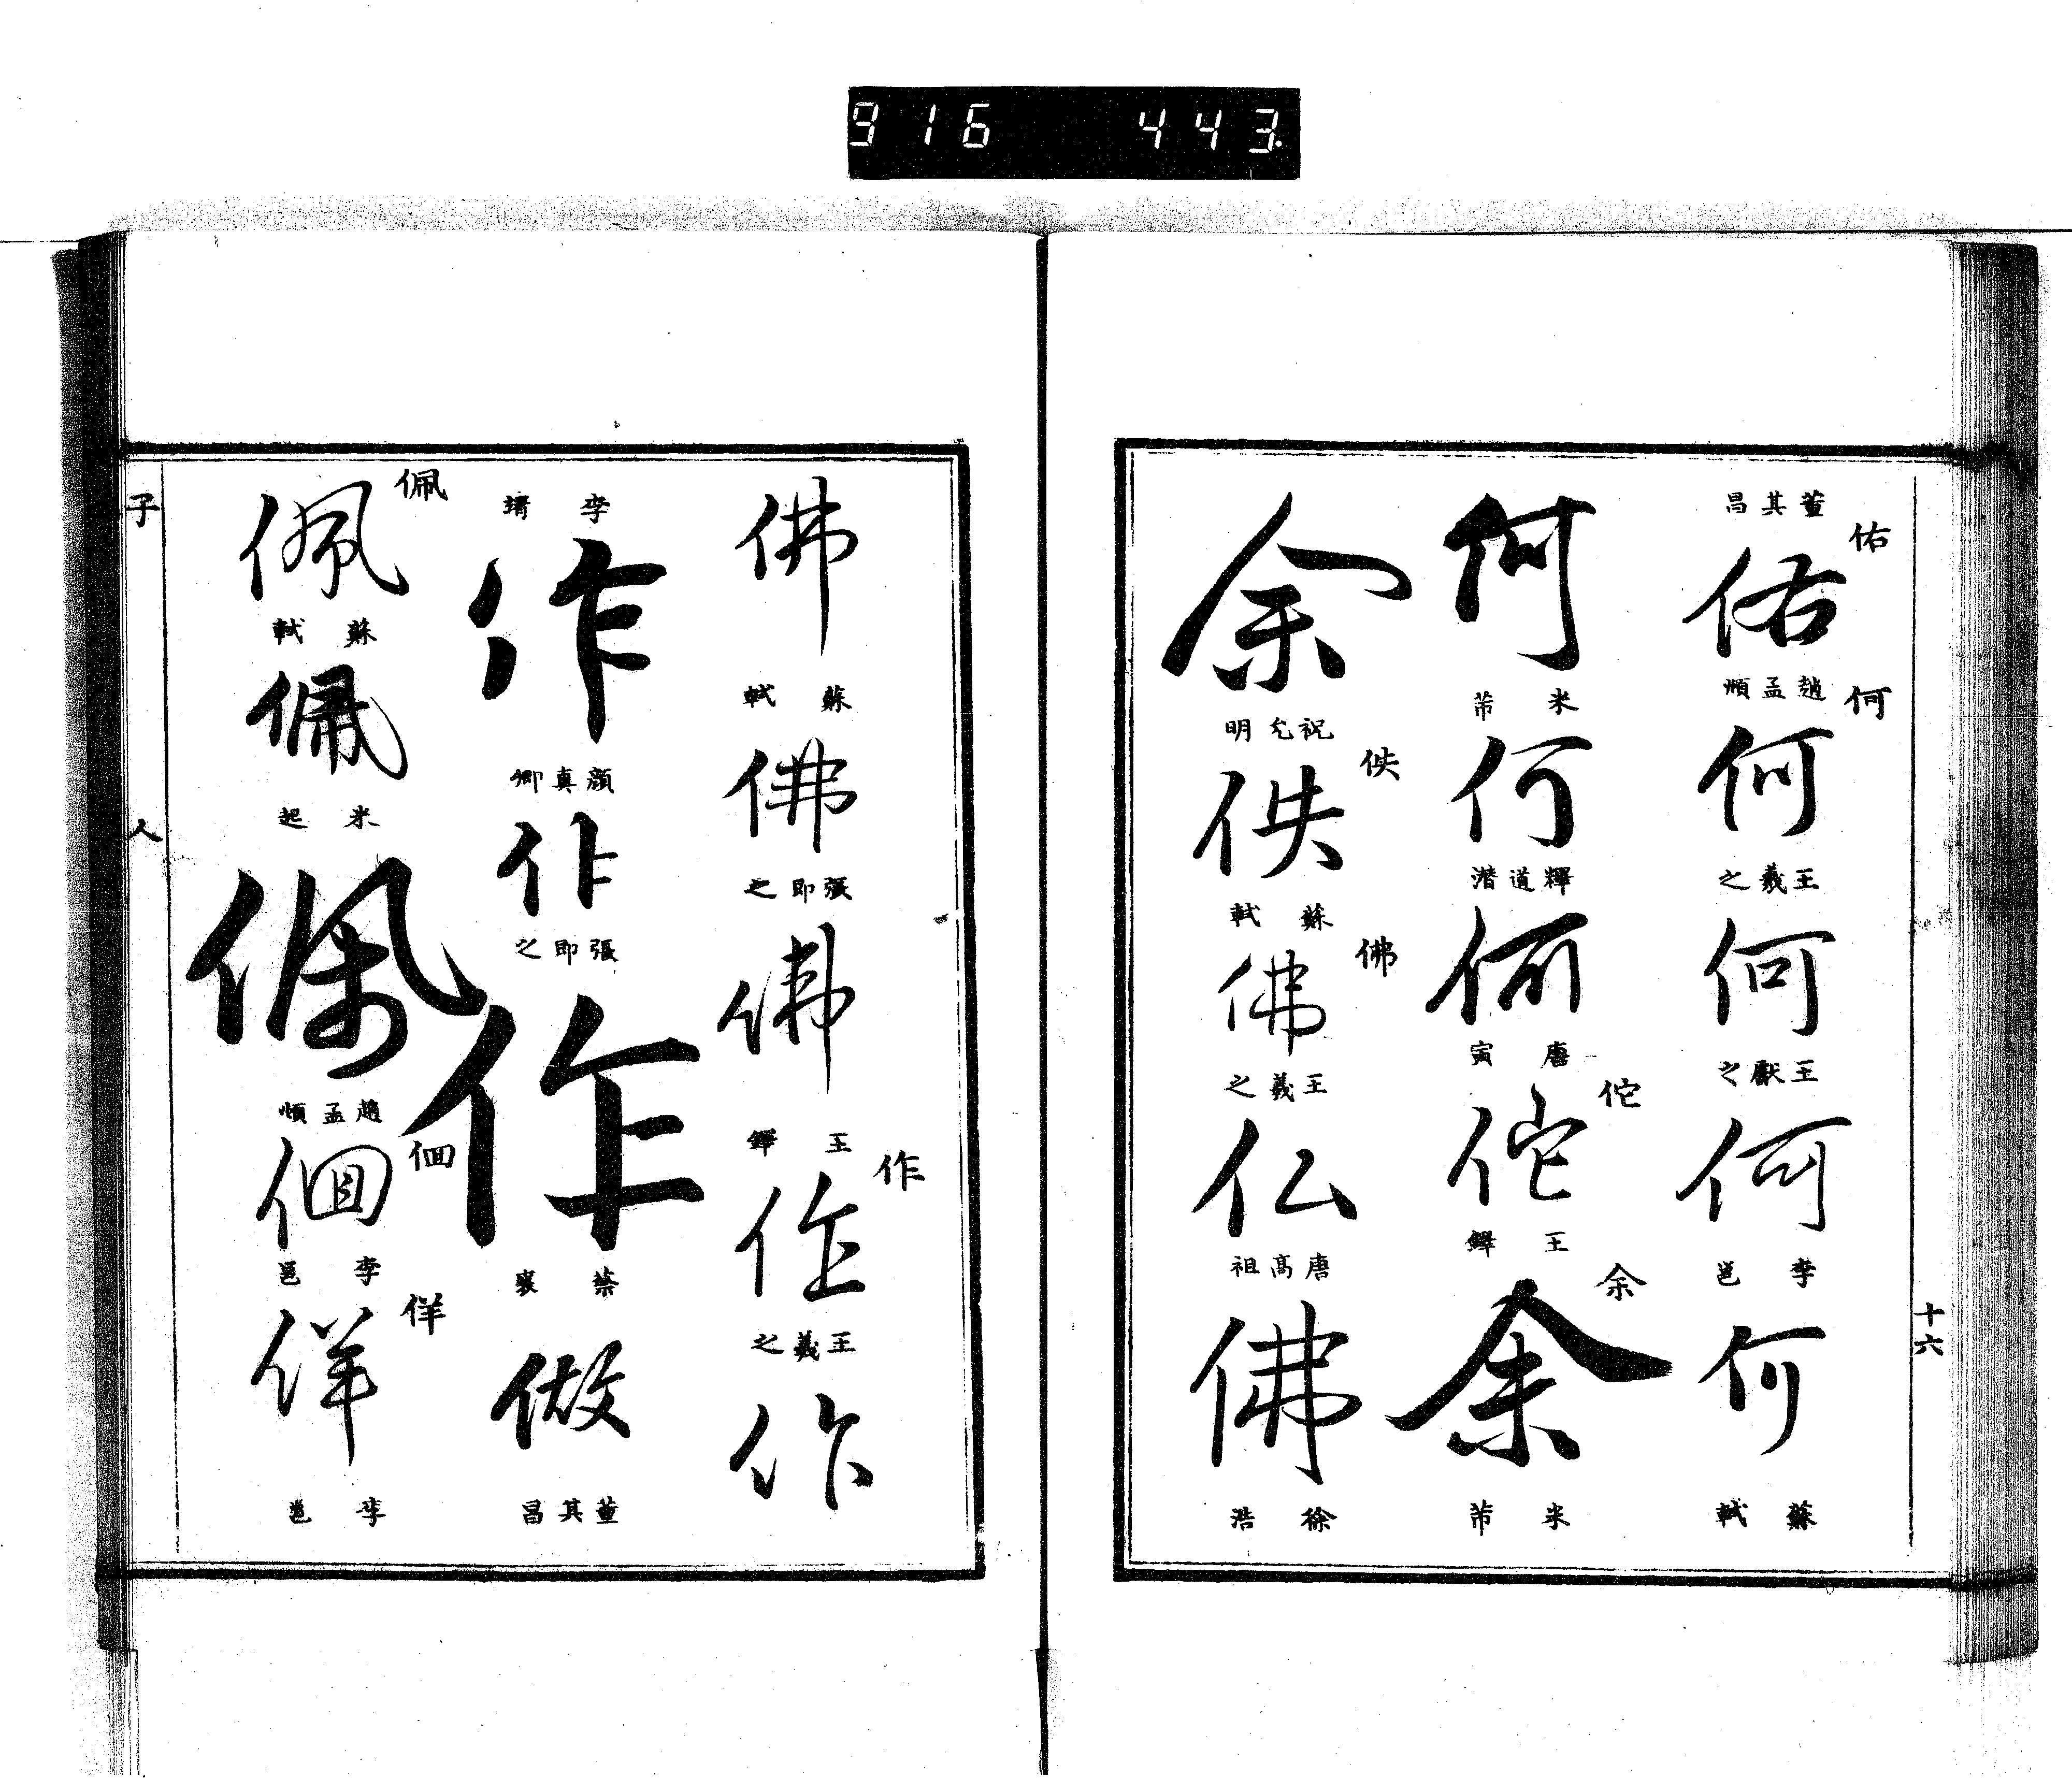 916 443.
十六
佑
昌其董
佑
何
頫孟趙
何
之羲王
何
之獻王
何
邕李
何
軾蘇
何
芾米
何
潛道釋
何
寅唐
佗
佗
鐸王
余
余
芾米
余
明允祝
佚
佚
軾蘇
佛
佛
之羲王
仏
祖高唐
佛
浩徐
佛
軾蘇
佛
之即張
佛
鐸王
作
作
之羲王
作
靖李
作
卿真顏
作
之即張
作
襄蔡
做
昌其董
佩
佩
軾蘇
佩
起米
佩
頫孟趙
佪
佪
邕李
佯
佯
邕李
子
人